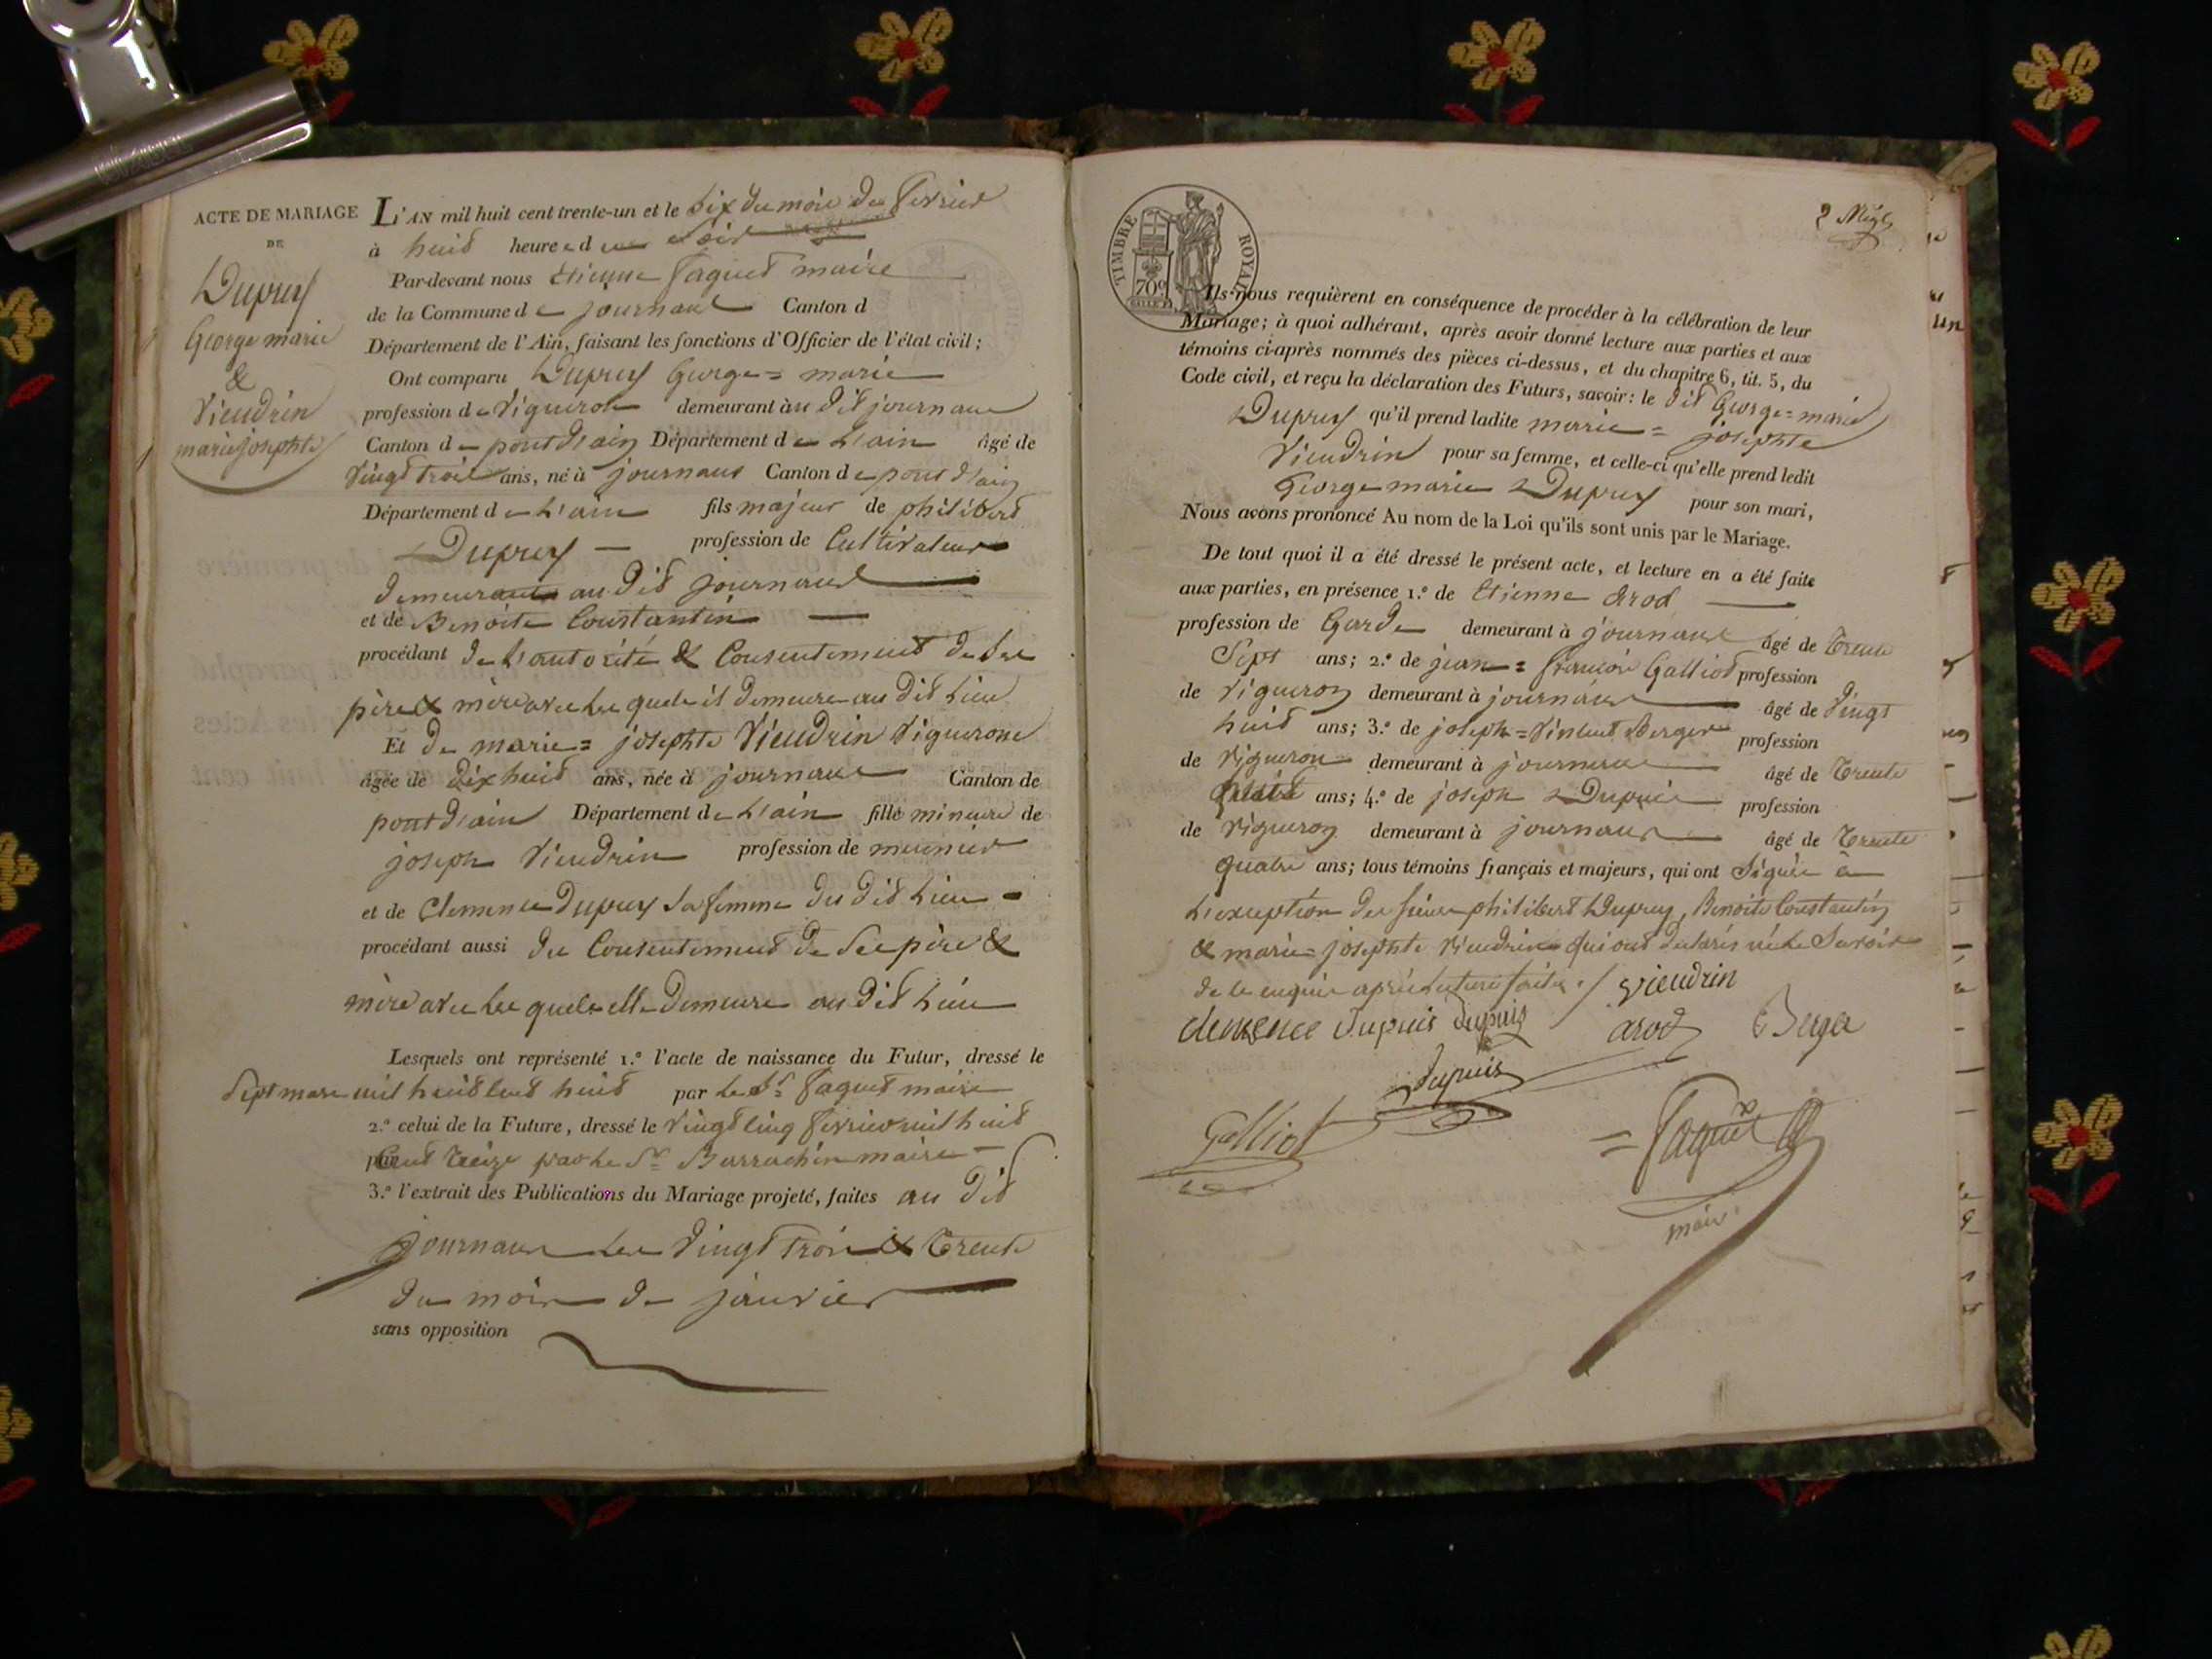 ACTE DE MARIAGE
DE
Dupuy
George marie
&
Vieudrin
marie josephte
L'AN mil huit cent trente-un et le dix du mois de fevrier
à huit heures du soir
Par-devant nous Etienne Faguet maire
de la Commune de journans Canton d
Département de l'Ain, faisant les fonctions d'Officier de l'état civil;
Ont comparu Dupuy George = marie
profession de Vigneron demeurant au dit journans
Canton de pont d'ain Département de L'ain âgé de
Vingt trois ans, né à journans Canton de pont d'ain
Département de L'ain fils majeur de philibert
Dupuy — profession de Cultivateur
demeurant au dit journans
et de Benoite Constantin
procédant de L'autorité & Consentement de ses
père & mère avec les quels il demeure au dit Lieu
Et de marie = josephte Vieudrin Vigneronne
âgée de dix huit ans, née à journans Canton de
pont d'ain Département de L'ain fille mineure de
joseph Vieudrin profession de meunier
et de Clemence Dupuy sa femme du dit Lieu
procédant aussi du Consentement de Ses père &
mère avec les quels elle demeure au dit Lieu
Lesquels ont représenté 1.º l'acte de naissance du Futur, dressé le
Sept mars mil huit cent huit par le Sr Faguet maire
2.º celui de la Future, dressé le Vingt cinq fevrier mil huit
Cent Treize par le Sr Barrachin maire
3.º l'extrait des Publications du Mariage projeté, faites au dit
journans les Vingt trois & Trente
du mois de janvier
sans opposition
TIMBRE ROYAL
70c
Ils nous requièrent en conséquence de procéder à la célébration de leur
Mariage; à quoi adhérant, après avoir donné lecture aux parties et aux
témoins ci-après nommés des pièces ci-dessus, et du chapitre 6, tit. 5, du
Code civil, et reçu la déclaration des Futurs, savoir: le dit George = marie
Dupuy qu'il prend ladite marie = josephte
Vieudrin pour sa femme, et celle-ci qu'elle prend ledit
George marie Dupuy pour son mari,
Nous avons prononcé Au nom de la Loi qu'ils sont unis par le Mariage.
De tout quoi il a été dressé le présent acte, et lecture en a été faite
aux parties, en présence 1.º de Etienne Arod
profession de Garde demeurant à journans âgé de Trente
Sept ans; 2.º de jean = françois Galliot profession
de Vigneron demeurant à journans âgé de Vingt
huit ans; 3.º de joseph = Vincent Berger profession
de Vigneron demeurant à journans âgé de Trente
ans; 4.º de joseph Dupuis profession
de Vigneron demeurant à journans âgé de Trente
quatre ans; tous témoins français et majeurs, qui ont Signés à
L'exception des Sieurs philibert Dupuy, Benoite Constantin
& marie = josephte Vieudrin qui ont declarés ne le Savoir
de le enquis après Lecture faite ./. Vieudrin
clemence Dupuis Dupuis arod Berger
Dupuis
Galliot = Faguet
maire